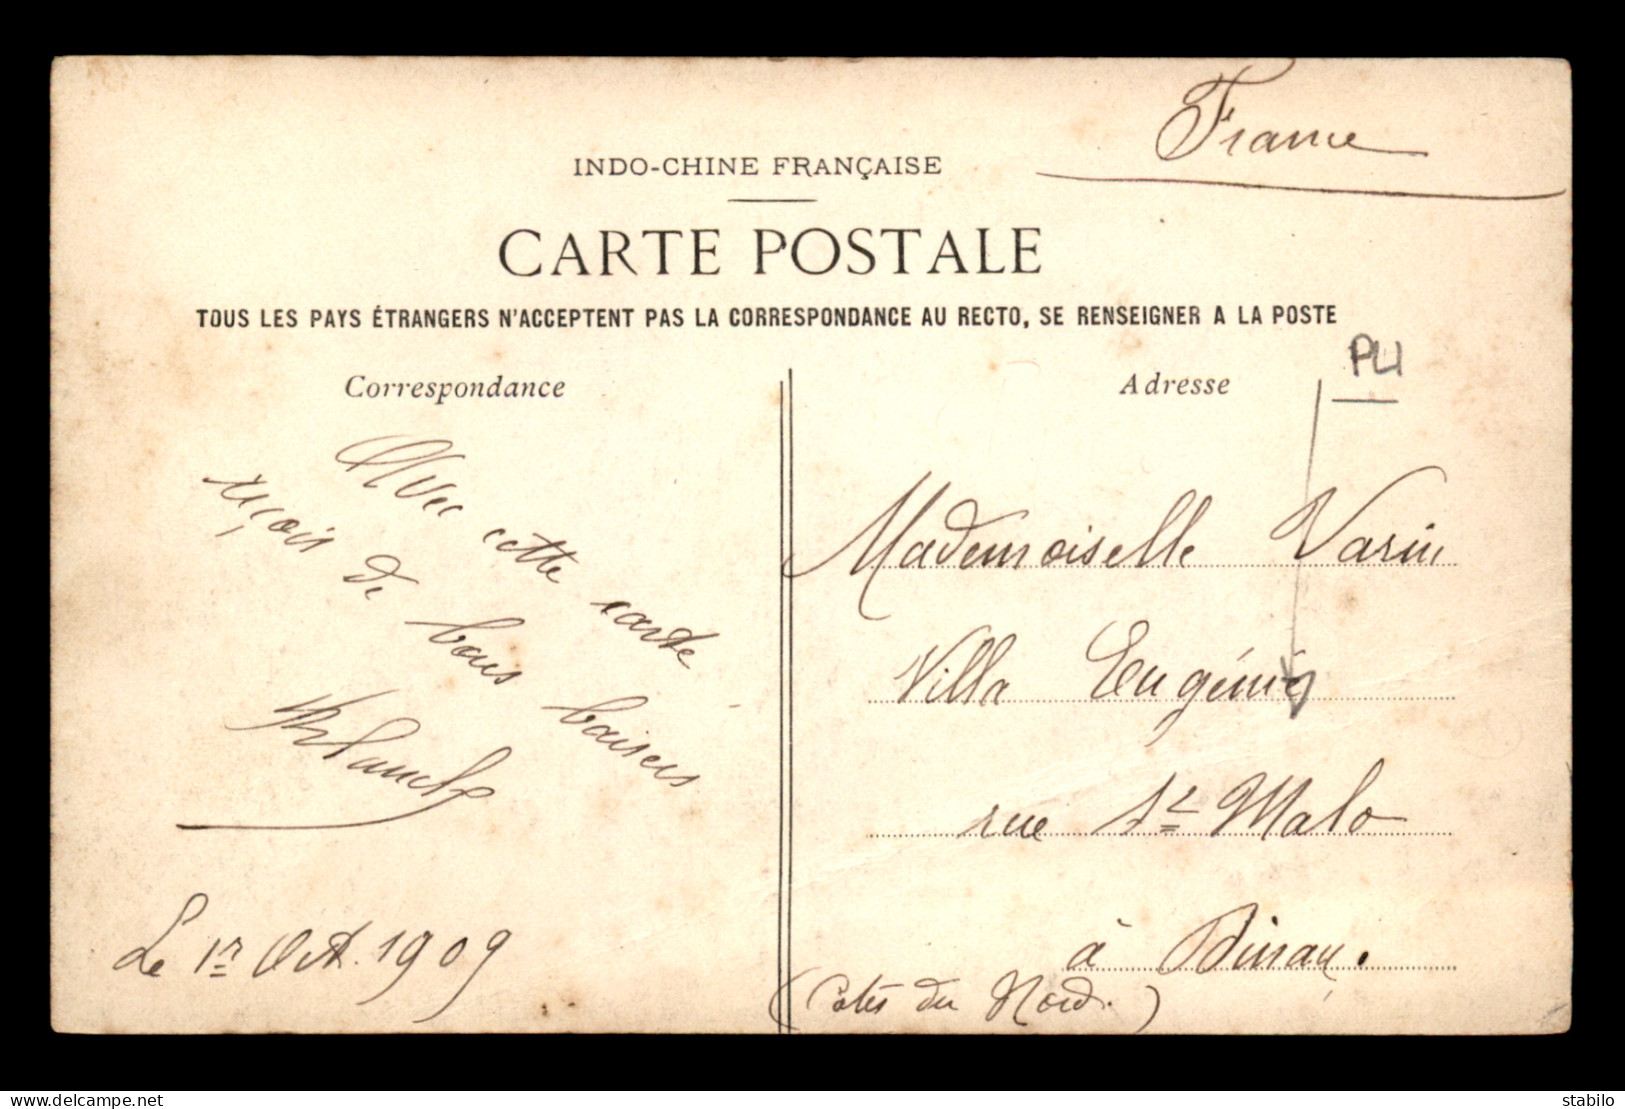 France
INDO-CHINE FRANÇAISE
CARTE POSTALE
TOUS LES PAYS ÉTRANGERS N'ACCEPTENT PAS LA CORRESPONDANCE AU RECTO, SE RENSEIGNER A LA POSTE
Correspondance
Avec cette carte
reçois de bons baisers
Blanche
Le 1er Oct. 1909
Adresse
PLI
Mademoiselle Varin
Villa Eugénie
rue St Malo
à Dinan.
(Côtes du Nord.)
delcampe.net
stabilo